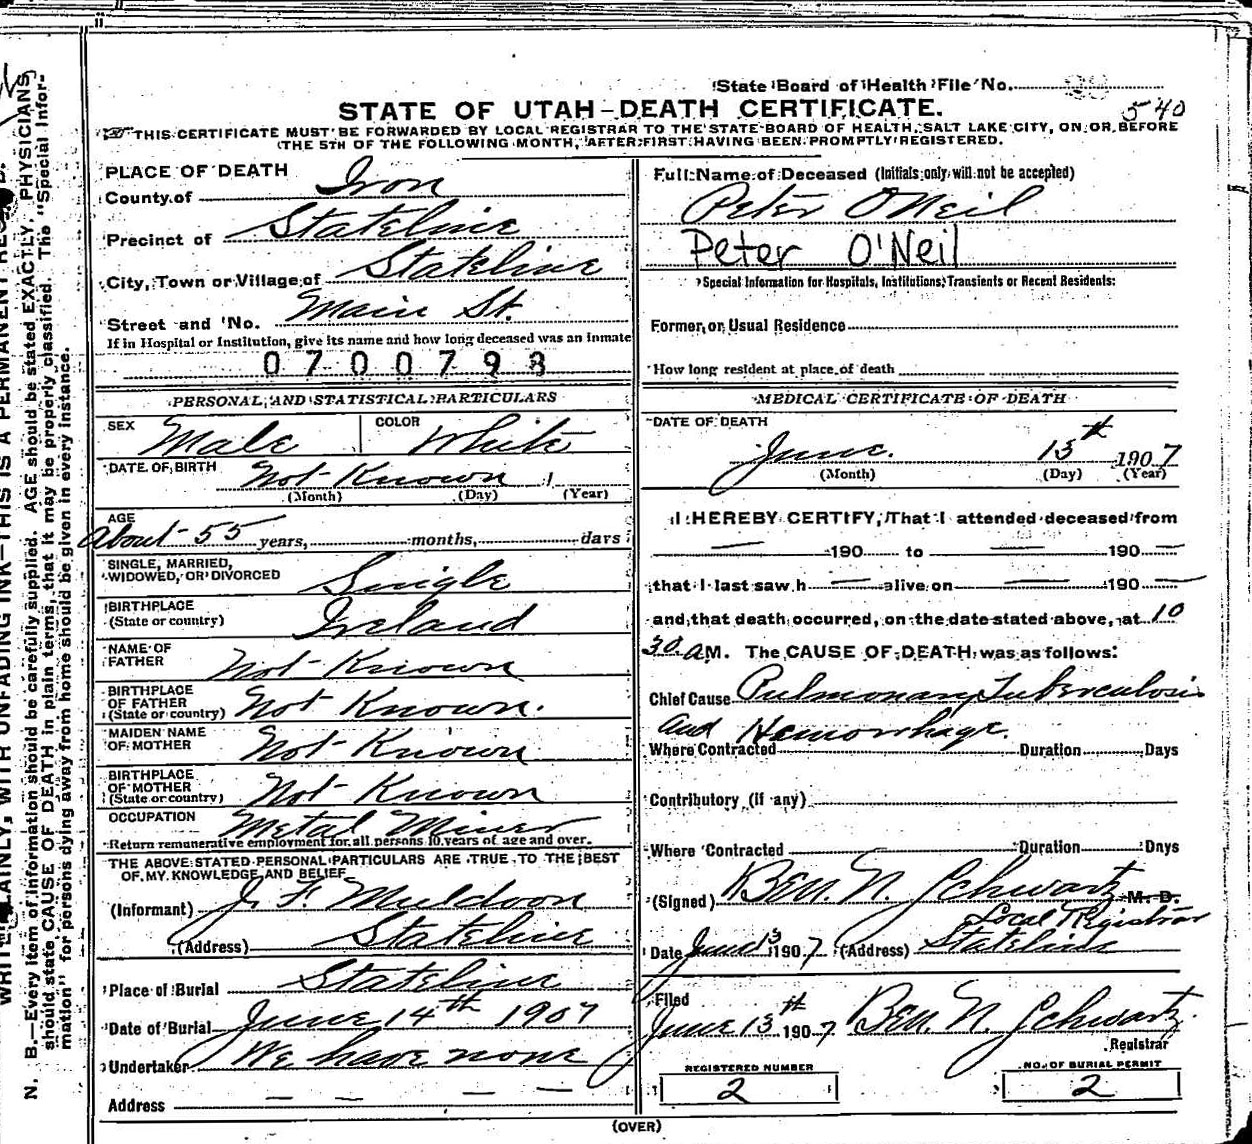 State Board of Health File No.
540
STATE OF UTAH—DEATH CERTIFICATE.
THIS CERTIFICATE MUST BE FORWARDED BY LOCAL REGISTRAR TO THE STATE BOARD OF HEALTH, SALT LAKE CITY, ON OR BEFORE
THE 5TH OF THE FOLLOWING MONTH, AFTER FIRST HAVING BEEN PROMPTLY REGISTERED.
PLACE OF DEATH
County of Iron
Precinct of Stateline
City, Town or Village of Stateline
Street and No. Main St.
If in Hospital or Institution, give its name and how long deceased was an inmate
0700798
PERSONAL AND STATISTICAL PARTICULARS
SEX Male COLOR White
DATE OF BIRTH Not Known 1
(Month) (Day) (Year)
AGE
About 55 years, months, days
SINGLE, MARRIED,
WIDOWED, OR DIVORCED Single
BIRTHPLACE
(State or country) Ireland
NAME OF
FATHER Not Known
BIRTHPLACE
OF FATHER
(State or country) Not Known.
MAIDEN NAME
OF MOTHER Not Known
BIRTHPLACE
OF MOTHER
(State or country) Not Known
OCCUPATION Metal Miner
Return remunerative employment for all persons 10 years of age and over.
THE ABOVE STATED PERSONAL PARTICULARS ARE TRUE TO THE BEST
OF MY KNOWLEDGE AND BELIEF
(Informant) J. F. Muldoon
(Address) Stateline
Place of Burial Stateline
Date of Burial June 14th 1907
Undertaker We have none
Address — — — —
Full Name of Deceased (Initials only will not be accepted)
Peter O'Neil
Peter O'Neil
Special Information for Hospitals, Institutions, Transients or Recent Residents:
Former or Usual Residence
How long resident at place of death
MEDICAL CERTIFICATE OF DEATH
DATE OF DEATH
June. 13th 1907
(Month) (Day) (Year)
I HEREBY CERTIFY, That I attended deceased from
— 190 to — 190 —
that I last saw h — alive on — 190 —
and that death occurred, on the date stated above, at 10
30 AM. The CAUSE OF DEATH was as follows:
Chief Cause Pulmonary Tuberculosis
and Hemorrhage.
Where Contracted Duration Days
Contributory (if any)
Where Contracted Duration Days
(Signed) Ben. N. Schwartz M. D.
Local Registrar
Date June 13 1907 (Address) Stateline
Filed
June 13th 1907 Ben. N. Schwartz.
Registrar
REGISTERED NUMBER
2
NO. OF BURIAL PERMIT
2
(OVER)
WRITE PLAINLY, WITH UNFADING INK—THIS IS A PERMANENT
N. B.—Every item of information should be carefully supplied. AGE should be stated EXACTLY. PHYSICIANS
should state CAUSE OF DEATH in plain terms, that it may be properly classified. The "Special Infor-
mation" for persons dying away from home should be given in every instance.